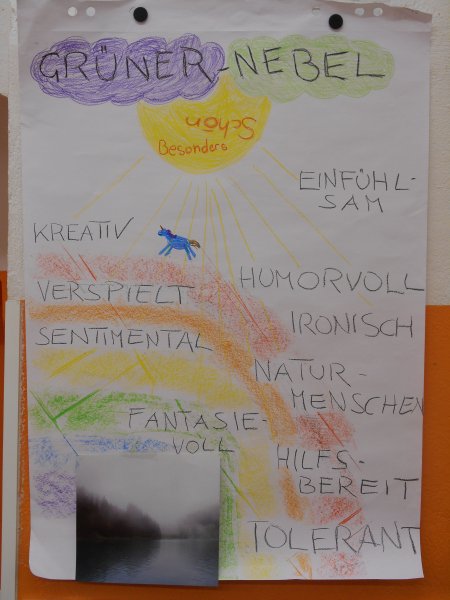 GRÜNER-NEBEL
Schön
Besonders
EINFÜHL-
SAM
KREATIV
HUMORVOLL
VERSPIELT
IRONISCH
SENTIMENTAL
NATUR-
MENSCHEN
FANTASIE-
VOLL
HILFS-
BEREIT
TOLERANT